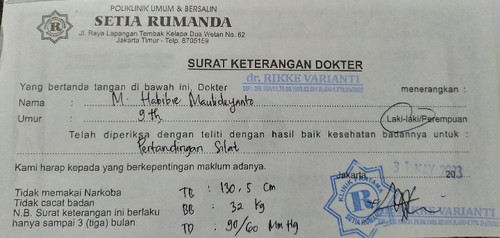 POLIKLINIK UMUM & BERSALIN
SETIA RUMANDA
Jl. Raya Lapangan Tembak Kelapa Dua Wetan No. 62
Jakarta Timur - Telp. 8705159
SURAT KETERANGAN DOKTER
dr. RIKKE VARIANTI
Yang bertanda tangan di bawah ini, Dokter menerangkan :
Nama : M. Habibie Maulidayanto
Umur : 9 th
Laki-laki/Perempuan
Telah diperiksa dengan teliti dengan hasil baik kesehatan badannya untuk :
Pertandingan Silat
Kami harap kepada yang berkepentingan maklum adanya.
Jakarta, 31 203
Tidak memakai Narkoba TB : 130,5 cm
Tidak cacat badan BB : 32 kg
N.B. Surat keterangan ini berlaku
hanya sampai 3 (tiga) bulan TD : 90/60 mm Hg
KLINIK PRATAMA
R
SETIA RUMANDA